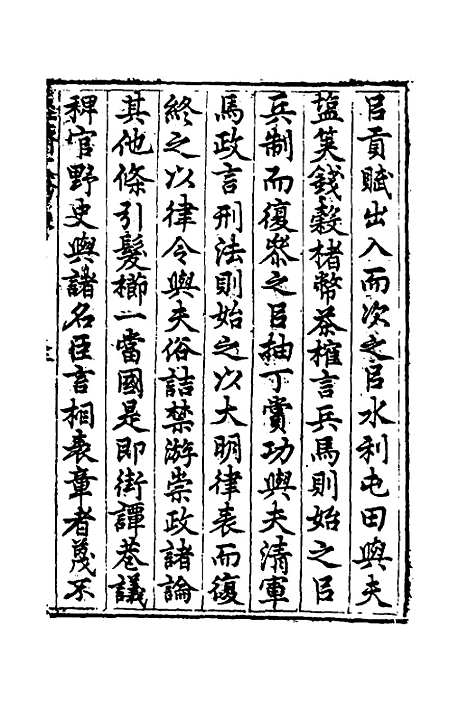 㠯貢賦出入而次之㠯水利屯田與夫
鹽筴錢穀楮幣茶榷言兵馬則始之㠯
兵制而復叅之㠯抽丁賞功與夫清軍
馬政言刑法則始之以大明律表而復
終之以律令與夫俗詰禁游崇政諸論
其他條引髮櫛一當國是即街譚巷議
稗官野史與諸名臣言相表章者蔑不